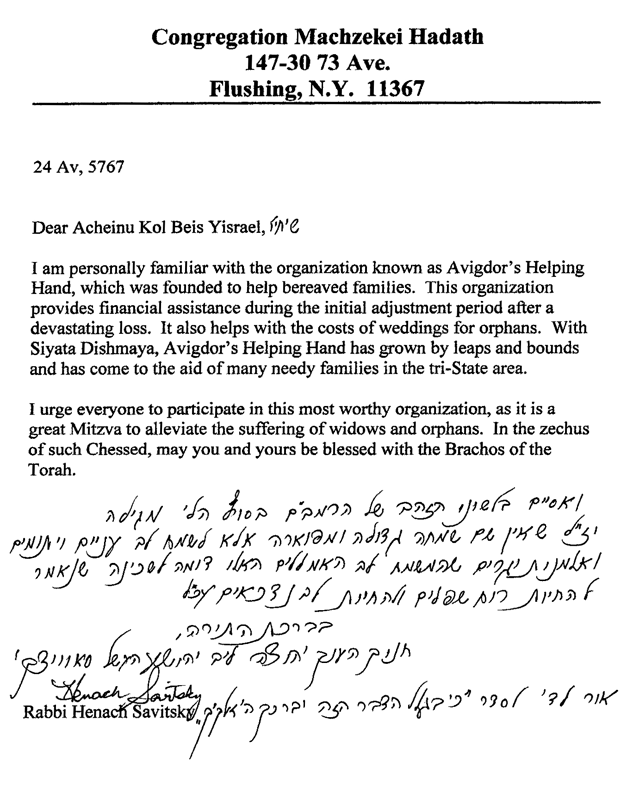 Congregation Machzekei Hadath
147-30 73 Ave.
Flushing, N.Y. 11367
24 Av, 5767
Dear Acheinu Kol Beis Yisrael, שיחי'
I am personally familiar with the organization known as Avigdor’s Helping
Hand, which was founded to help bereaved families. This organization
provides financial assistance during the initial adjustment period after a
devastating loss. It also helps with the costs of weddings for orphans. With
Siyata Dishmaya, Avigdor’s Helping Hand has grown by leaps and bounds
and has come to the aid of many needy families in the tri-State area.
I urge everyone to participate in this most worthy organization, as it is a
great Mitzva to alleviate the suffering of widows and orphans. In the zechus
of such Chessed, may you and yours be blessed with the Brachos of the
Torah.
ואסיים בלשונו הזהב של הרמב"ם בסוף הל' מגילה
וז"ל שאין שם שמחה גדולה ומפוארה אלא לשמח לב עניים ויתומים
ואלמנות וגרים שהמשמח לב האמללים האלו דומה לשכינה שנאמר
להחיות רוח שפלים ולהחיות לב נדכאים עכ"ל
בברכת התורה,
חניך הענך ליב יהושע העשל סאוויצקי
Henach Savitsky
Rabbi Henach Savitsky
אור לד' לסדר "כי בגלל הדבר הזה יברכך ה' אלקיך"